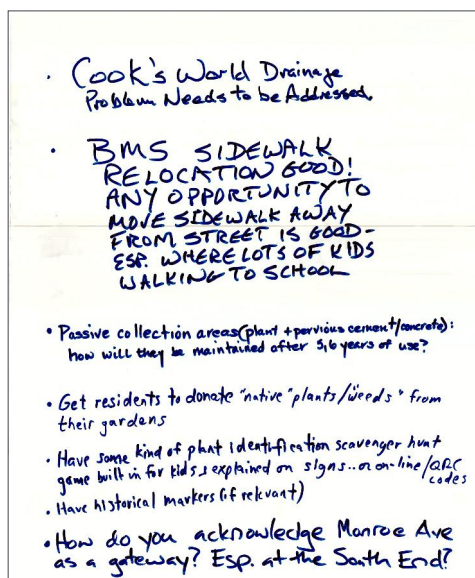 · Cook's World Drainage
Problem Needs to be Addressed.
· BMS SIDEWALK
RELOCATION GOOD!
ANY OPPORTUNITY TO
MOVE SIDEWALK AWAY
FROM STREET IS GOOD-
ESP. WHERE LOTS OF KIDS
WALKING TO SCHOOL
• Passive collection areas (plant + pervious cement/concrete):
how will they be maintained after 5,6 years of use?
• Get residents to donate "native" plants/"weeds" from
their gardens
• Have some kind of plant identification scavenger hunt
game built in for kids & explained on signs... or on-line/QRC
codes
• Have historical markers (if relevant)
• How do you acknowledge Monroe Ave
as a gateway? Esp. at the South End?